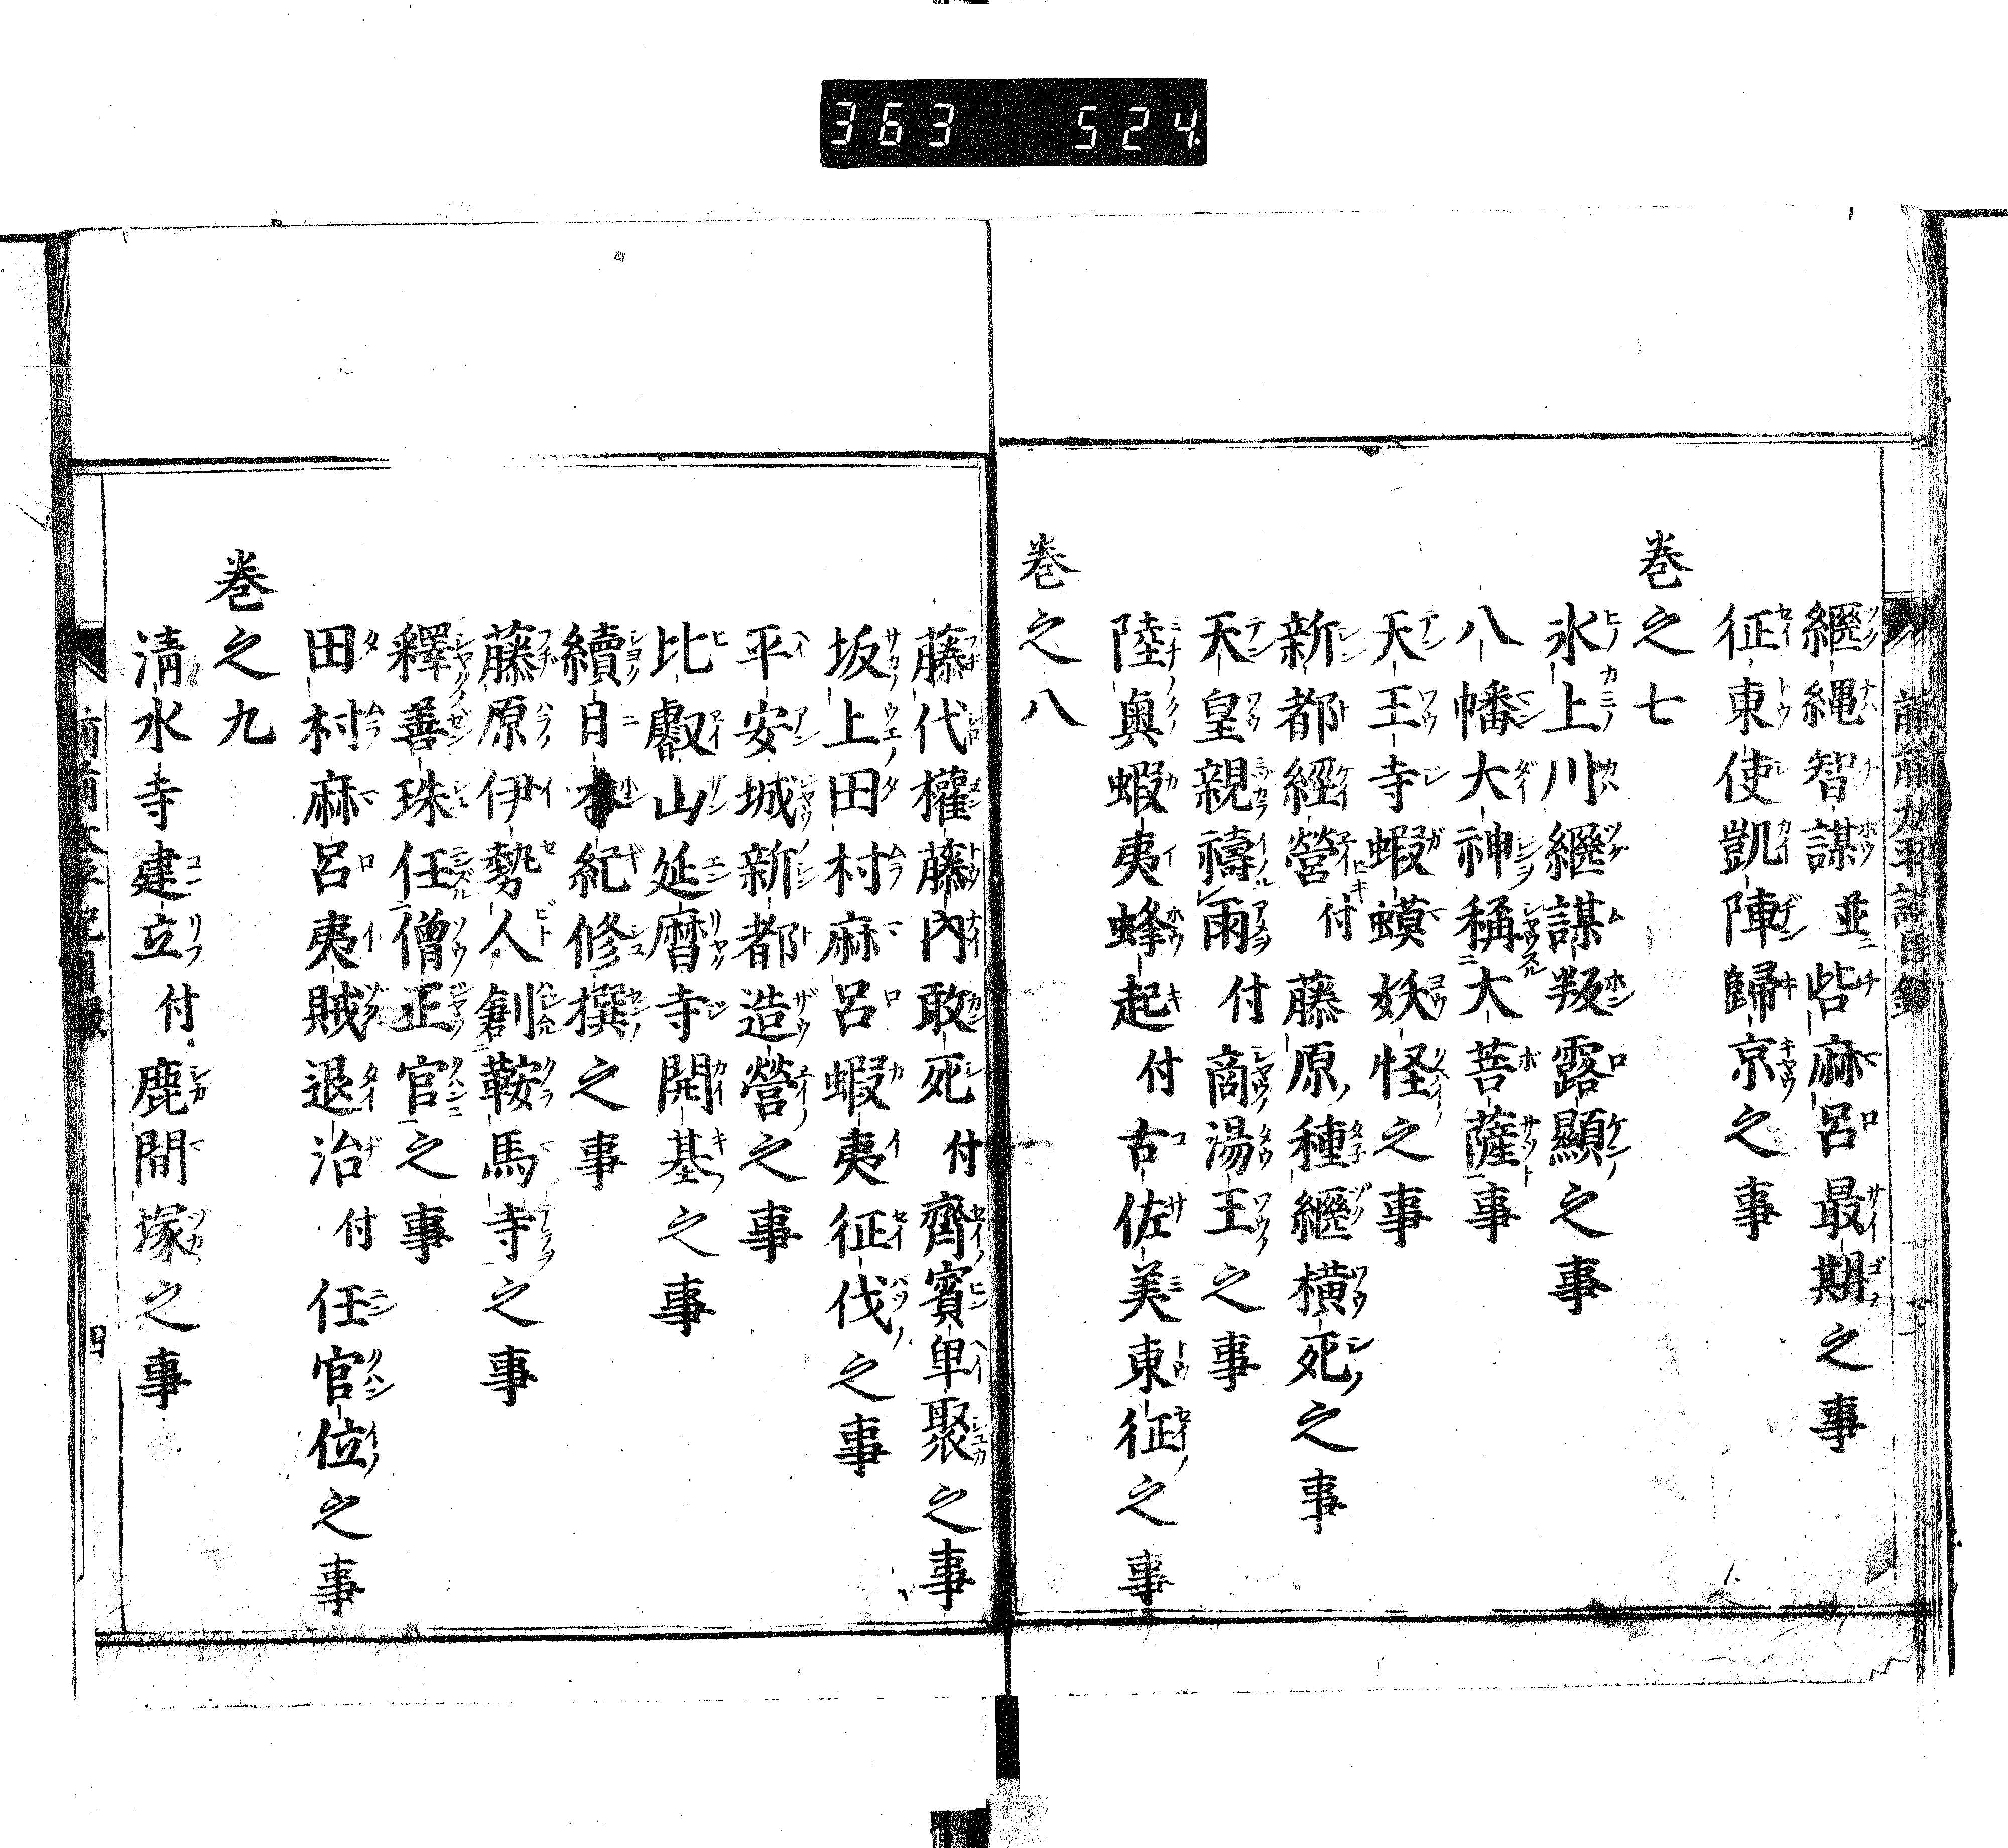 363 524
繼繩智謀並呰麻呂最期之事
征東使凱陣歸京之事
卷之七
氷上川繼謀叛露顯之事
八幡大神稱大菩薩事
天王寺蝦蟇妖怪之事
新都經營付藤原種繼横死之事
天皇親禱雨付商湯王之事
陸奥蝦夷蜂起付古佐美東征之事
卷之八
藤代權藤内敢死付齊賓卑聚之事
坂上田村麻呂蝦夷征伐之事
平安城新都造營之事
比叡山延暦寺開基之事
續日本紀修撰之事
藤原伊勢人創鞍馬寺之事
釋善珠任僧正官之事
田村麻呂夷賊退治付任官位之事
卷之九
清水寺建立付鹿間塚之事
四